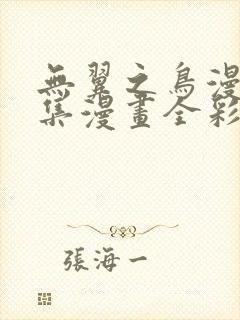 無翼之鳥漫
集漫畫全彩
張海一